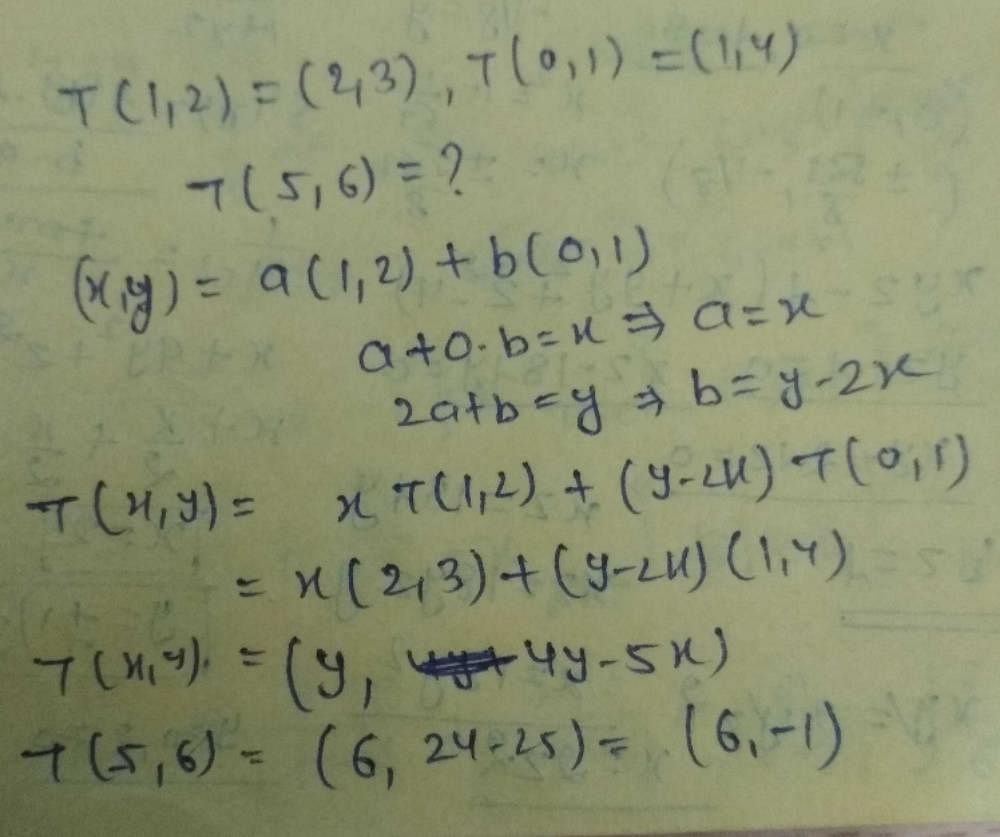 T(1,2) = (2,3), T(0,1) = (1,4)
T(5,6) = ?
(x,y) = a(1,2) + b(0,1)
a+0·b = x ⇒ a = x
2a+b = y ⇒ b = y-2x
T(x,y) = x T(1,2) + (y-2x) T(0,1)
= x(2,3) + (y-2x) (1,4)
T(x,y) = (y, 4y-5x)
T(5,6) = (6, 24-25) = (6,-1)